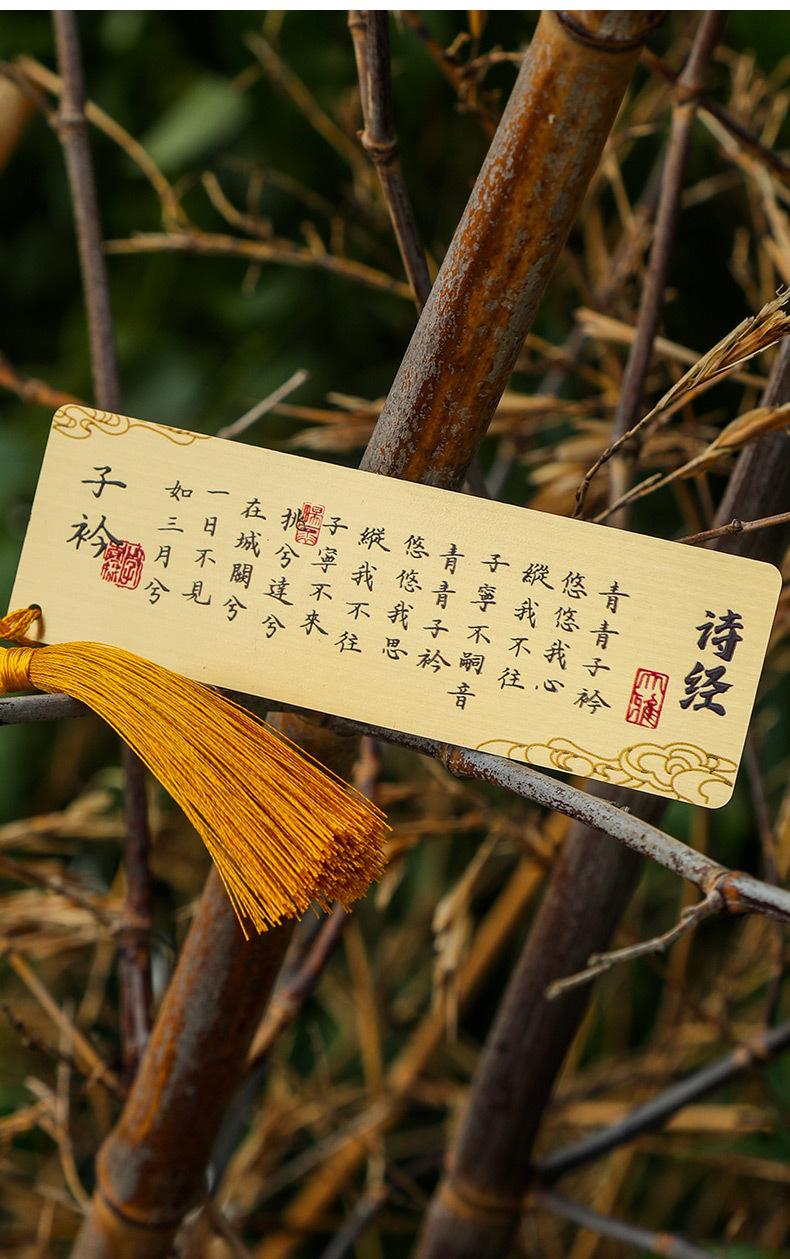 诗经
大雅
青青子衿
悠悠我心
縱我不往
子寧不嗣音
青青子衿
悠悠我思
縱我不往
子寧不来
挑兮達兮
在城闕兮
一日不見
如三月兮
子衿